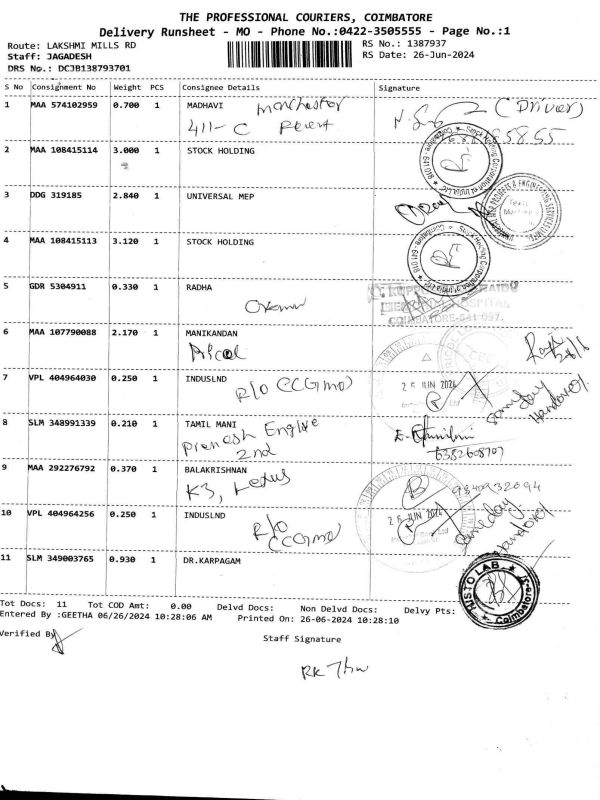 THE PROFESSIONAL COURIERS, COIMBATORE
Delivery Runsheet - MO - Phone No.:0422-3505555 - Page No.:1
Route: LAKSHMI MILLS RD
RS No.: 1387937
Staff: JAGADESH
RS Date: 26-Jun-2024
DRS No.: DCJB138793701
S No Consignment No Weight PCS Consignee Details Signature
1 MAA 574102959 0.700 1 MADHAVI Manchester (Driver)
411-C
2 MAA 108415114 3.000 1 STOCK HOLDING
3 DDG 319185 2.840 1 UNIVERSAL MEP
4 MAA 108415113 3.120 1 STOCK HOLDING
5 GDR 5304911 0.330 1 RADHA
HOSPITAL
COIMBATORE-641 037.
6 MAA 107790088 2.170 1 MANIKANDAN
7 VPL 404964030 0.250 1 INDUSLND 26 JUN 2024
R/O CCGmO
Same day Handover
8 SLM 348991339 0.210 1 TAMIL MANI
Pranesh Englive
2nd
6382608707
9 MAA 292276792 0.370 1 BALAKRISHNAN
K3, Lexus
9840932094
10 VPL 404964256 0.250 1 INDUSLND 26 JUN 2024
R/O
CCGmO
Same day Handover
11 SLM 349003765 0.930 1 DR.KARPAGAM
HISTO LAB
Coimbatore
Tot Docs: 11 Tot COD Amt: 0.00 Delvd Docs: Non Delvd Docs: Delvy Pts:
Entered By :GEETHA 06/26/2024 10:28:06 AM Printed On: 26-06-2024 10:28:10
Verified By
Staff Signature